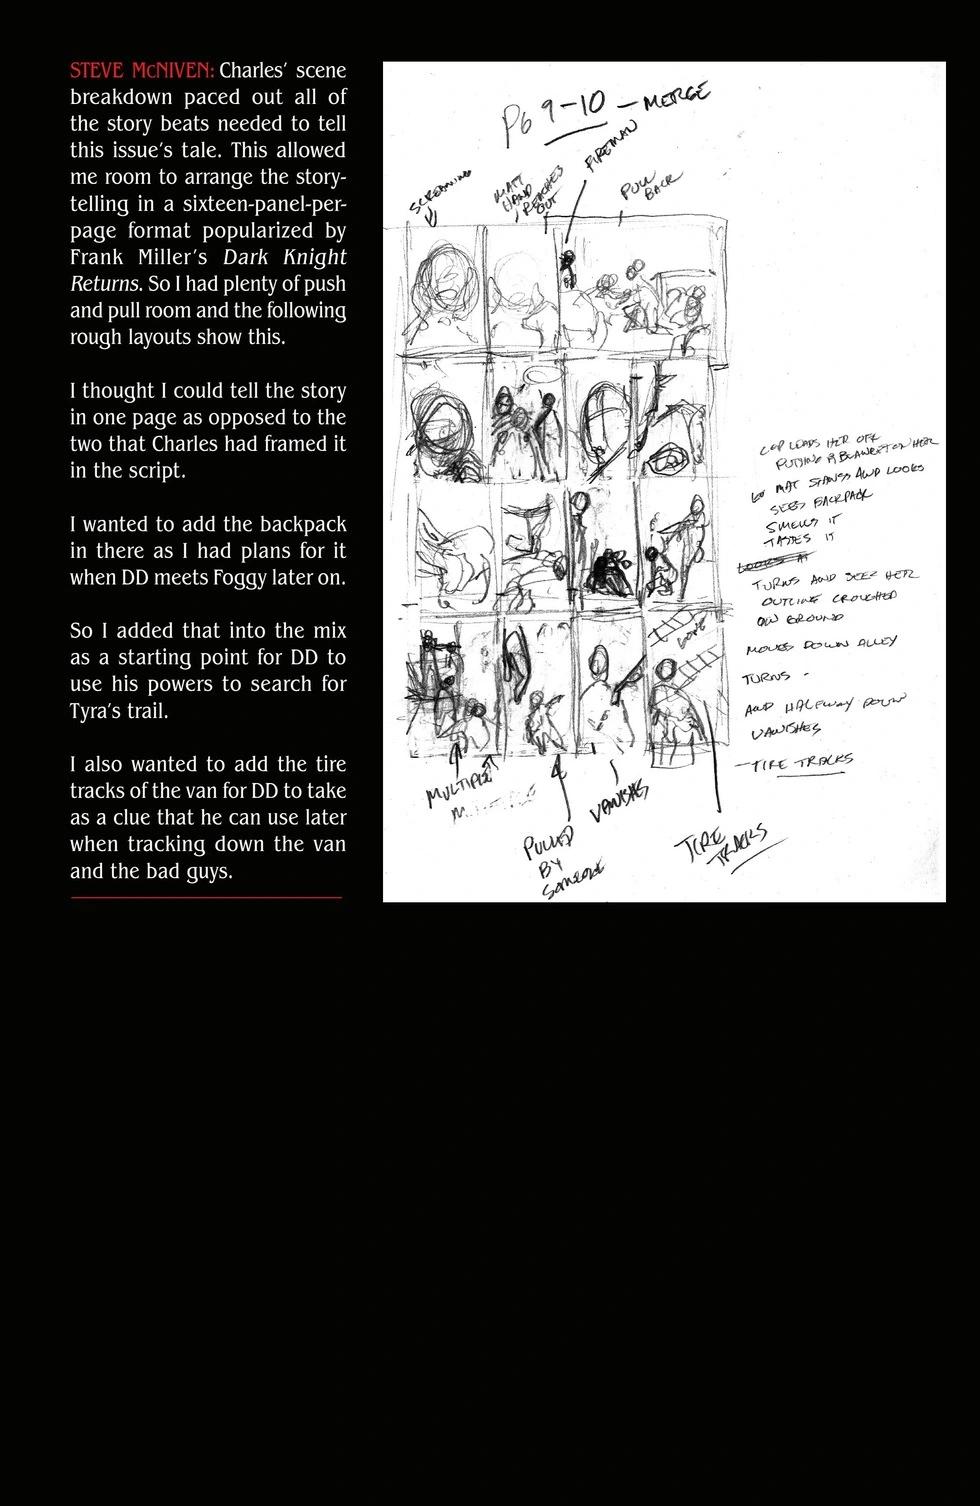 STEVE McNIVEN: Charles' scene
breakdown paced out all of
the story beats needed to tell
this issue's tale. This allowed
me room to arrange the story-
telling in a sixteen-panel-per-
page format popularized by
Frank Miller's Dark Knight
Returns. So I had plenty of push
and pull room and the following
rough layouts show this.
I thought I could tell the story
in one page as opposed to the
two that Charles had framed it
in the script.
I wanted to add the backpack
in there as I had plans for it
when DD meets Foggy later on.
So I added that into the mix
as a starting point for DD to
use his powers to search for
Tyra's trail.
I also wanted to add the tire
tracks of the van for DD to take
as a clue that he can use later
when tracking down the van
and the bad guys.
PG 9-10 - MERGE
SCREAMING
MATT
HAND
REACHES
OUT
FIREMAN
PULL
BACK
COP LEADS HER OFF
PUTTING A BLANKET ON HER
MAT STANDS AND LOOKS
SEES BACKPACK
SMELLS IT
TASTES IT
LOOKS AT
TURNS AND SEES HER
OUTLINE CROUCHED
ON GROUND
MOVES DOWN ALLEY
TURNS -
AND HALFWAY DOWN
VANISHES
- TIRE TRACKS
MULTIPLE
PULLED
BY
SOMEONE
VANISHES
TIRE
TRACKS